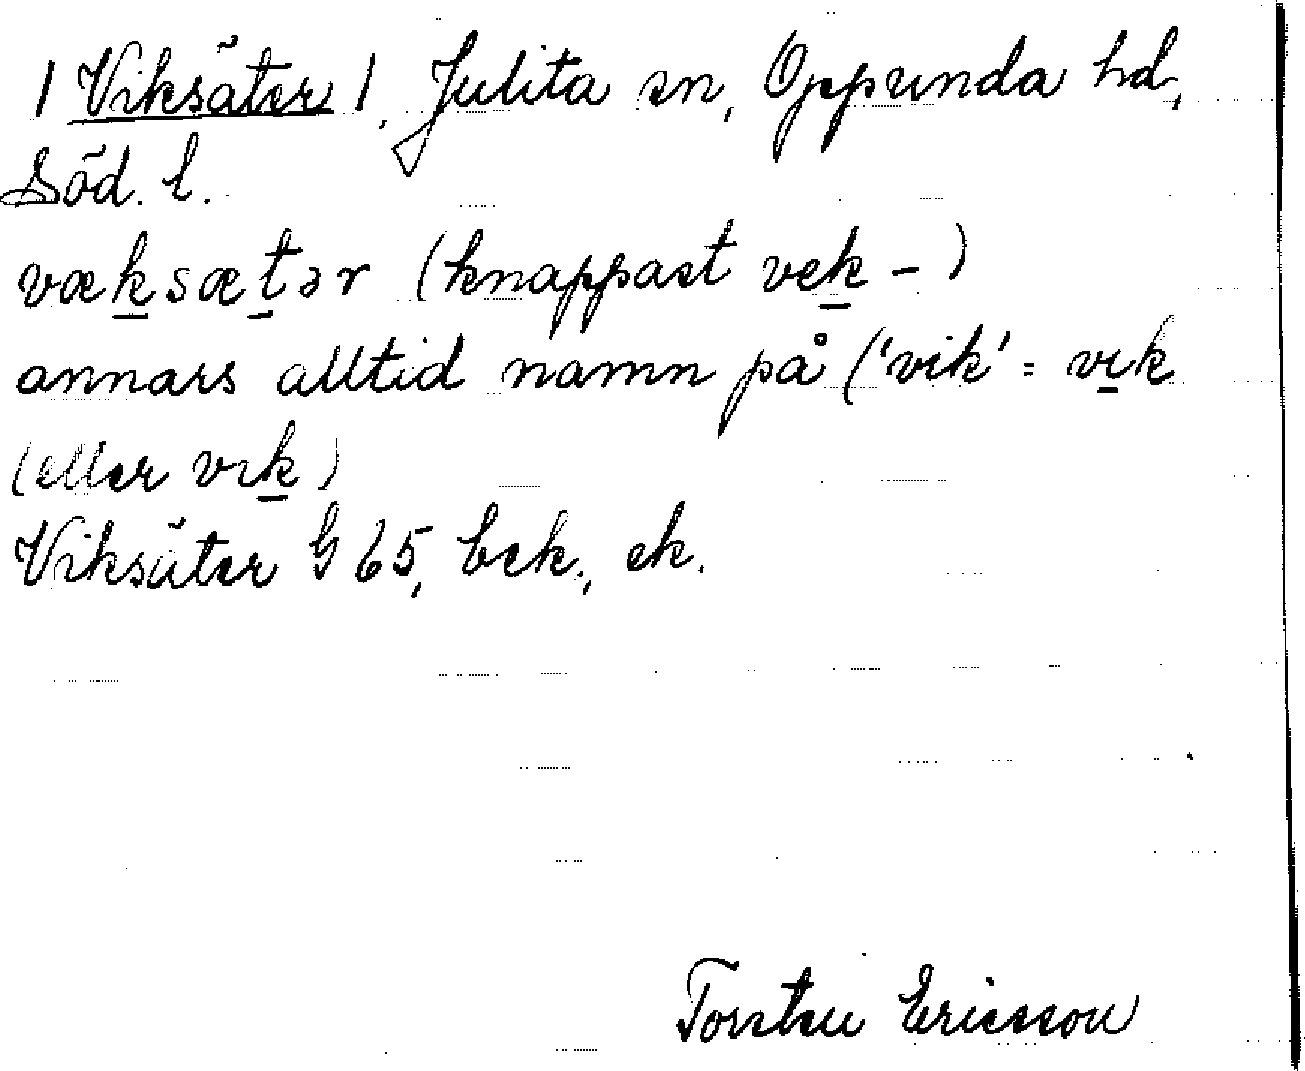 / Viksäter /, Julita sn, Oppunda hd,
Söd. l.
væksætər (knappast vek - )
annars alltid namn på ('vik' = vık
(eller vık)
Viksäter G 65, bek., ek.
Torsten Ericsson